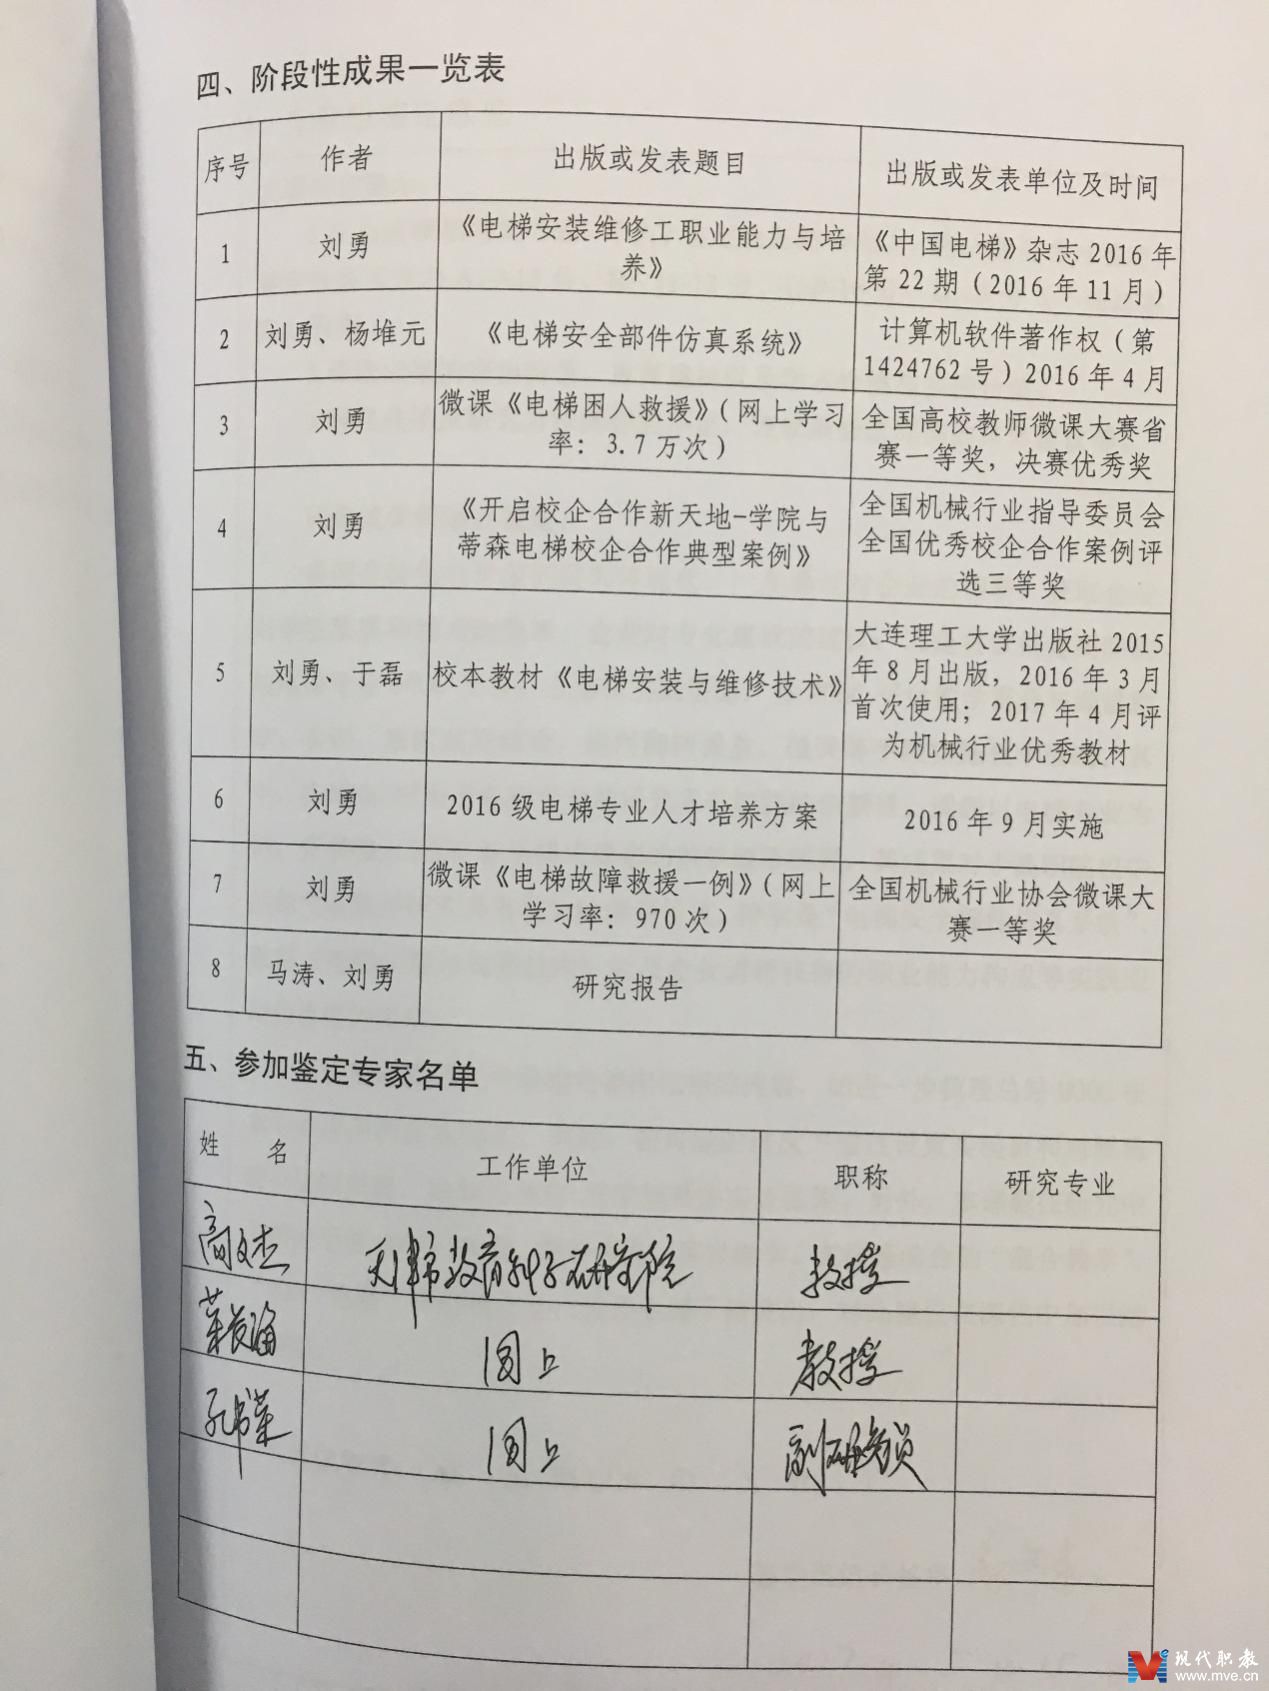 四、阶段性成果一览表
序号 作者 出版或发表题目 出版或发表单位及时间
1 刘勇 《电梯安装维修工职业能力与培
养》
《中国电梯》杂志 2016 年
第 22 期（2016 年 11 月）
2 刘勇、杨堆元 《电梯安全部件仿真系统》
计算机软件著作权（第
1424762 号）2016 年 4 月
3 刘勇 微课《电梯困人救援》（网上学习
率：3.7 万次）
全国高校教师微课大赛省
赛一等奖，决赛优秀奖
4 刘勇 《开启校企合作新天地-学院与
蒂森电梯校企合作典型案例》
全国机械行业指导委员会
全国优秀校企合作案例评
选三等奖
5 刘勇、于磊 校本教材《电梯安装与维修技术》
大连理工大学出版社 2015
年 8 月出版，2016 年 3 月
首次使用；2017 年 4 月评
为机械行业优秀教材
6 刘勇 2016 级电梯专业人才培养方案 2016 年 9 月实施
7 刘勇 微课《电梯故障救援一例》（网上
学习率：970 次）
全国机械行业协会微课大
赛一等奖
8 马涛、刘勇 研究报告
五、参加鉴定专家名单
姓 名 工作单位 职称 研究专业
高文杰 天津市教育科学研究院 教授
同上 教授
同上 副研究员
现代职教
www.mve.cn